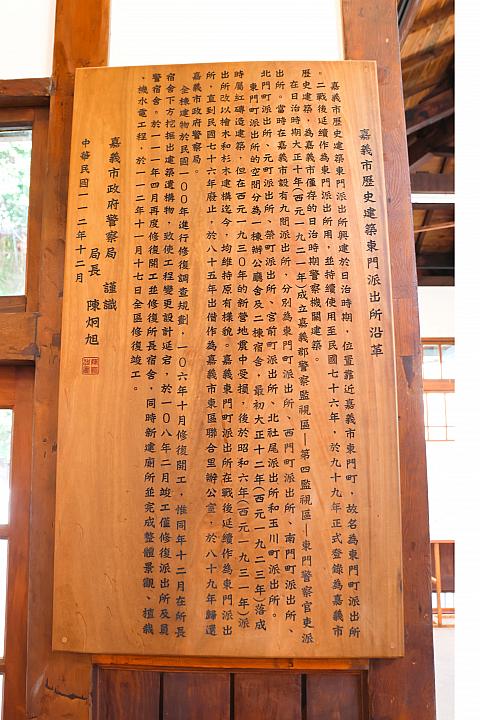 嘉義市歷史建築東門派出所沿革
嘉義市歷史建築東門派出所興建於日治時期，位置靠近嘉義市東門町，故名為東門町派出所
。二戰後延續作為東門派出所用，並持續使用至民國七十六年，於九十九年正式登錄為嘉義市
歷史建築，為嘉義市僅存的日治時期警察機關建築。
在日治時期大正十年(西元一九二一年)成立嘉義郡警察監視區—第四監視區—東門警察官吏派
出所。當時在嘉義市設有九間派出所，分別為東門町派出所、西門町派出所、南門町派出所、
北門町派出所、元町派出所、榮町派出所、宮前町派出所、北社尾派出所和玉川町派出所。
東門町派出所的空間分為一棟辦公廳舍及二棟宿舍，最初大正十二年(西元一九二三年)落成
時屬紅磚造建築，但在西元一九三0年的新營地震中受損，後於昭和六年(西元一九三一年)派
出所改以檜木和杉木建構迄今，均維持原有樣貌。嘉義東門町派出所在戰後延續作為東門派出
所，直到民國七十六年廢止，於八十五年出借作為嘉義市東區聯合里辦公室，於八十九年歸還
嘉義市政府警察局。
全棟建物於民國一00年進行修復調查規劃，一0六年十月修復開工，惟同年十二月在所長
宿舍下方挖掘出建築遺構物，致使工程變更設計延宕，於一0八年二月竣工僅修復派出所及員
警宿舍。於一一一年四月再度修復開工並修復所長宿舍，同時新建廁所並完成整體景觀、植栽
、機水電工程，於一一二年十一月十七日全區修復竣工。
嘉義市政府警察局 謹識
局長 陳炯旭
中華民國一一二年十二月